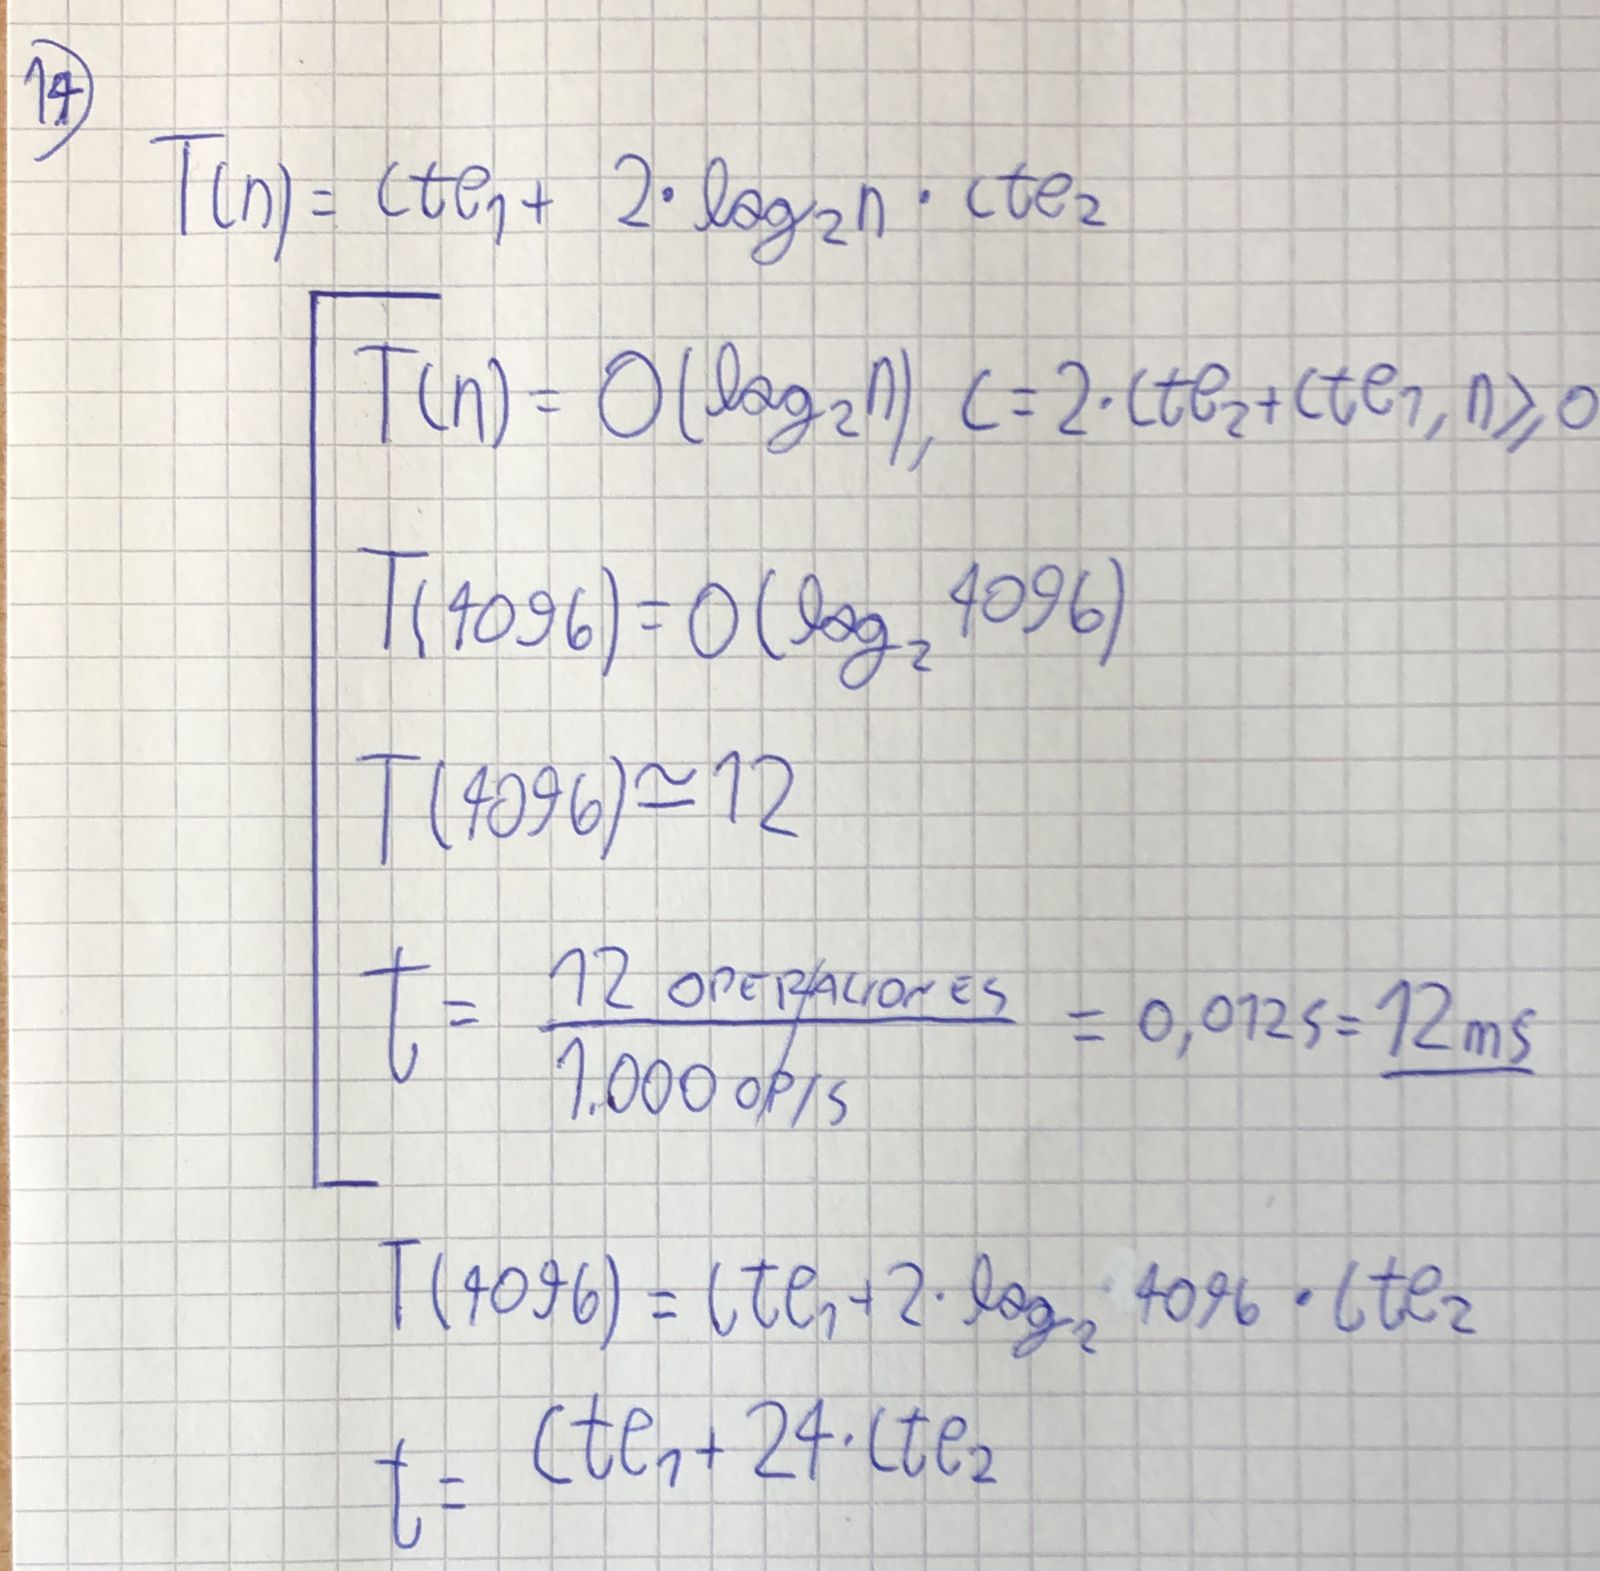 14)
T(n) = cte₁ + 2·log₂n · cte₂
T(n) = O(log₂n), C = 2·cte₂ + cte₁, n ≥ 0
T(4096) = O(log₂ 4096)
T(4096) ≃ 12
t = 12 OPERACIONES / 1.000 OP/s = 0,012 s = 12 ms
T(4096) = cte₁ + 2·log₂ 4096 · cte₂
t = cte₁ + 24·cte₂